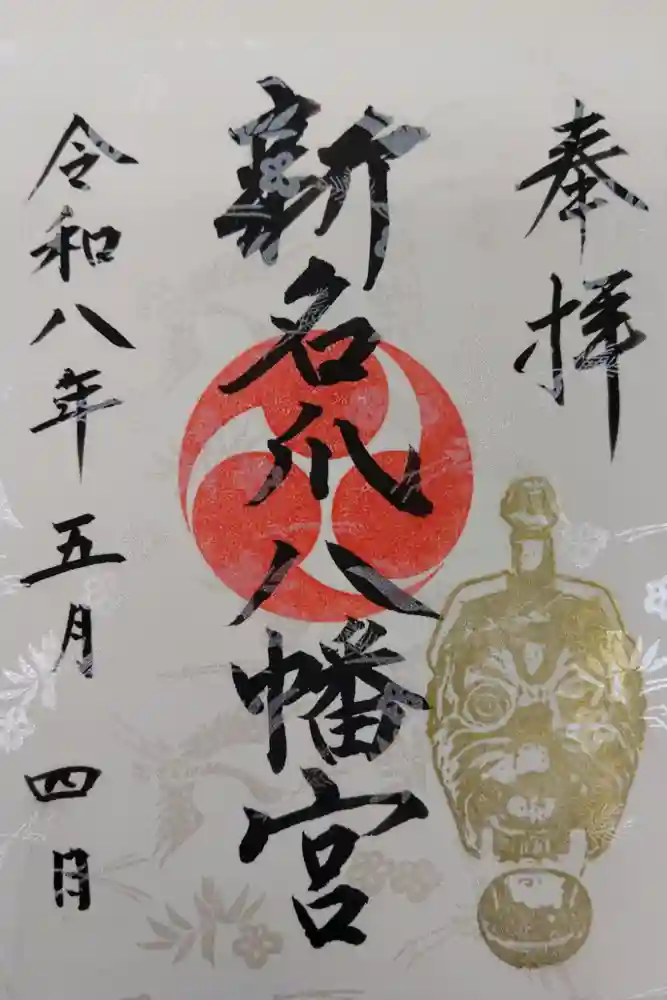 奉拝
新名爪八幡宮
令和八年五月四月